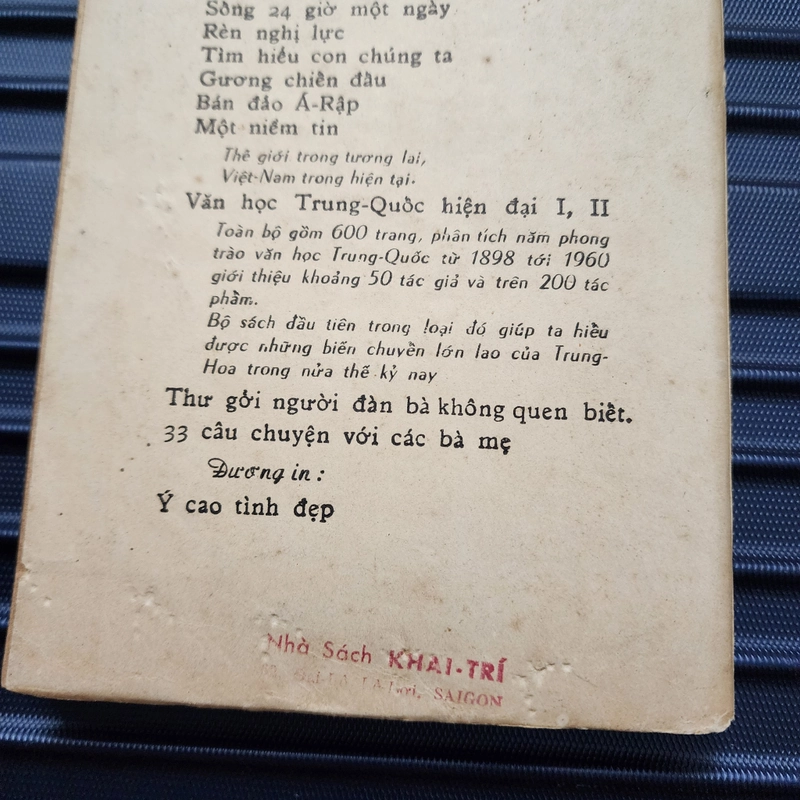 Sống 24 giờ một ngày
Rèn nghị lực
Tìm hiểu con chúng ta
Gương chiến đấu
Bán đảo Á-Rập
Một niềm tin
Thế giới trong tương lai,
Việt-Nam trong hiện tại.
Văn học Trung-Quốc hiện đại I, II
Toàn bộ gồm 600 trang, phân tích năm phong
trào văn học Trung-Quốc từ 1898 tới 1960
giới thiệu khoảng 50 tác giả và trên 200 tác
phẩm.
Bộ sách đầu tiên trong loại đó giúp ta hiểu
được những biến chuyển lớn lao của Trung-
Hoa trong nửa thế kỷ nay
Thư gởi người đàn bà không quen biết.
33 câu chuyện với các bà mẹ
Đương in :
Ý cao tình đẹp
Nhà Sách KHAI-TRÍ
SAIGON